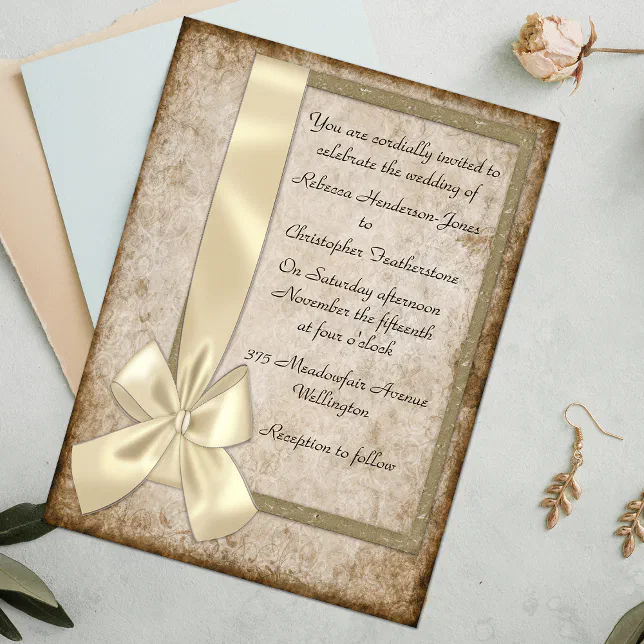 You are cordially invited to
celebrate the wedding of
Rebecca Henderson-Jones
to
Christopher Featherstone
On Saturday afternoon
November the fifteenth
at four o'clock
375 Meadowfair Avenue
Wellington
Reception to follow